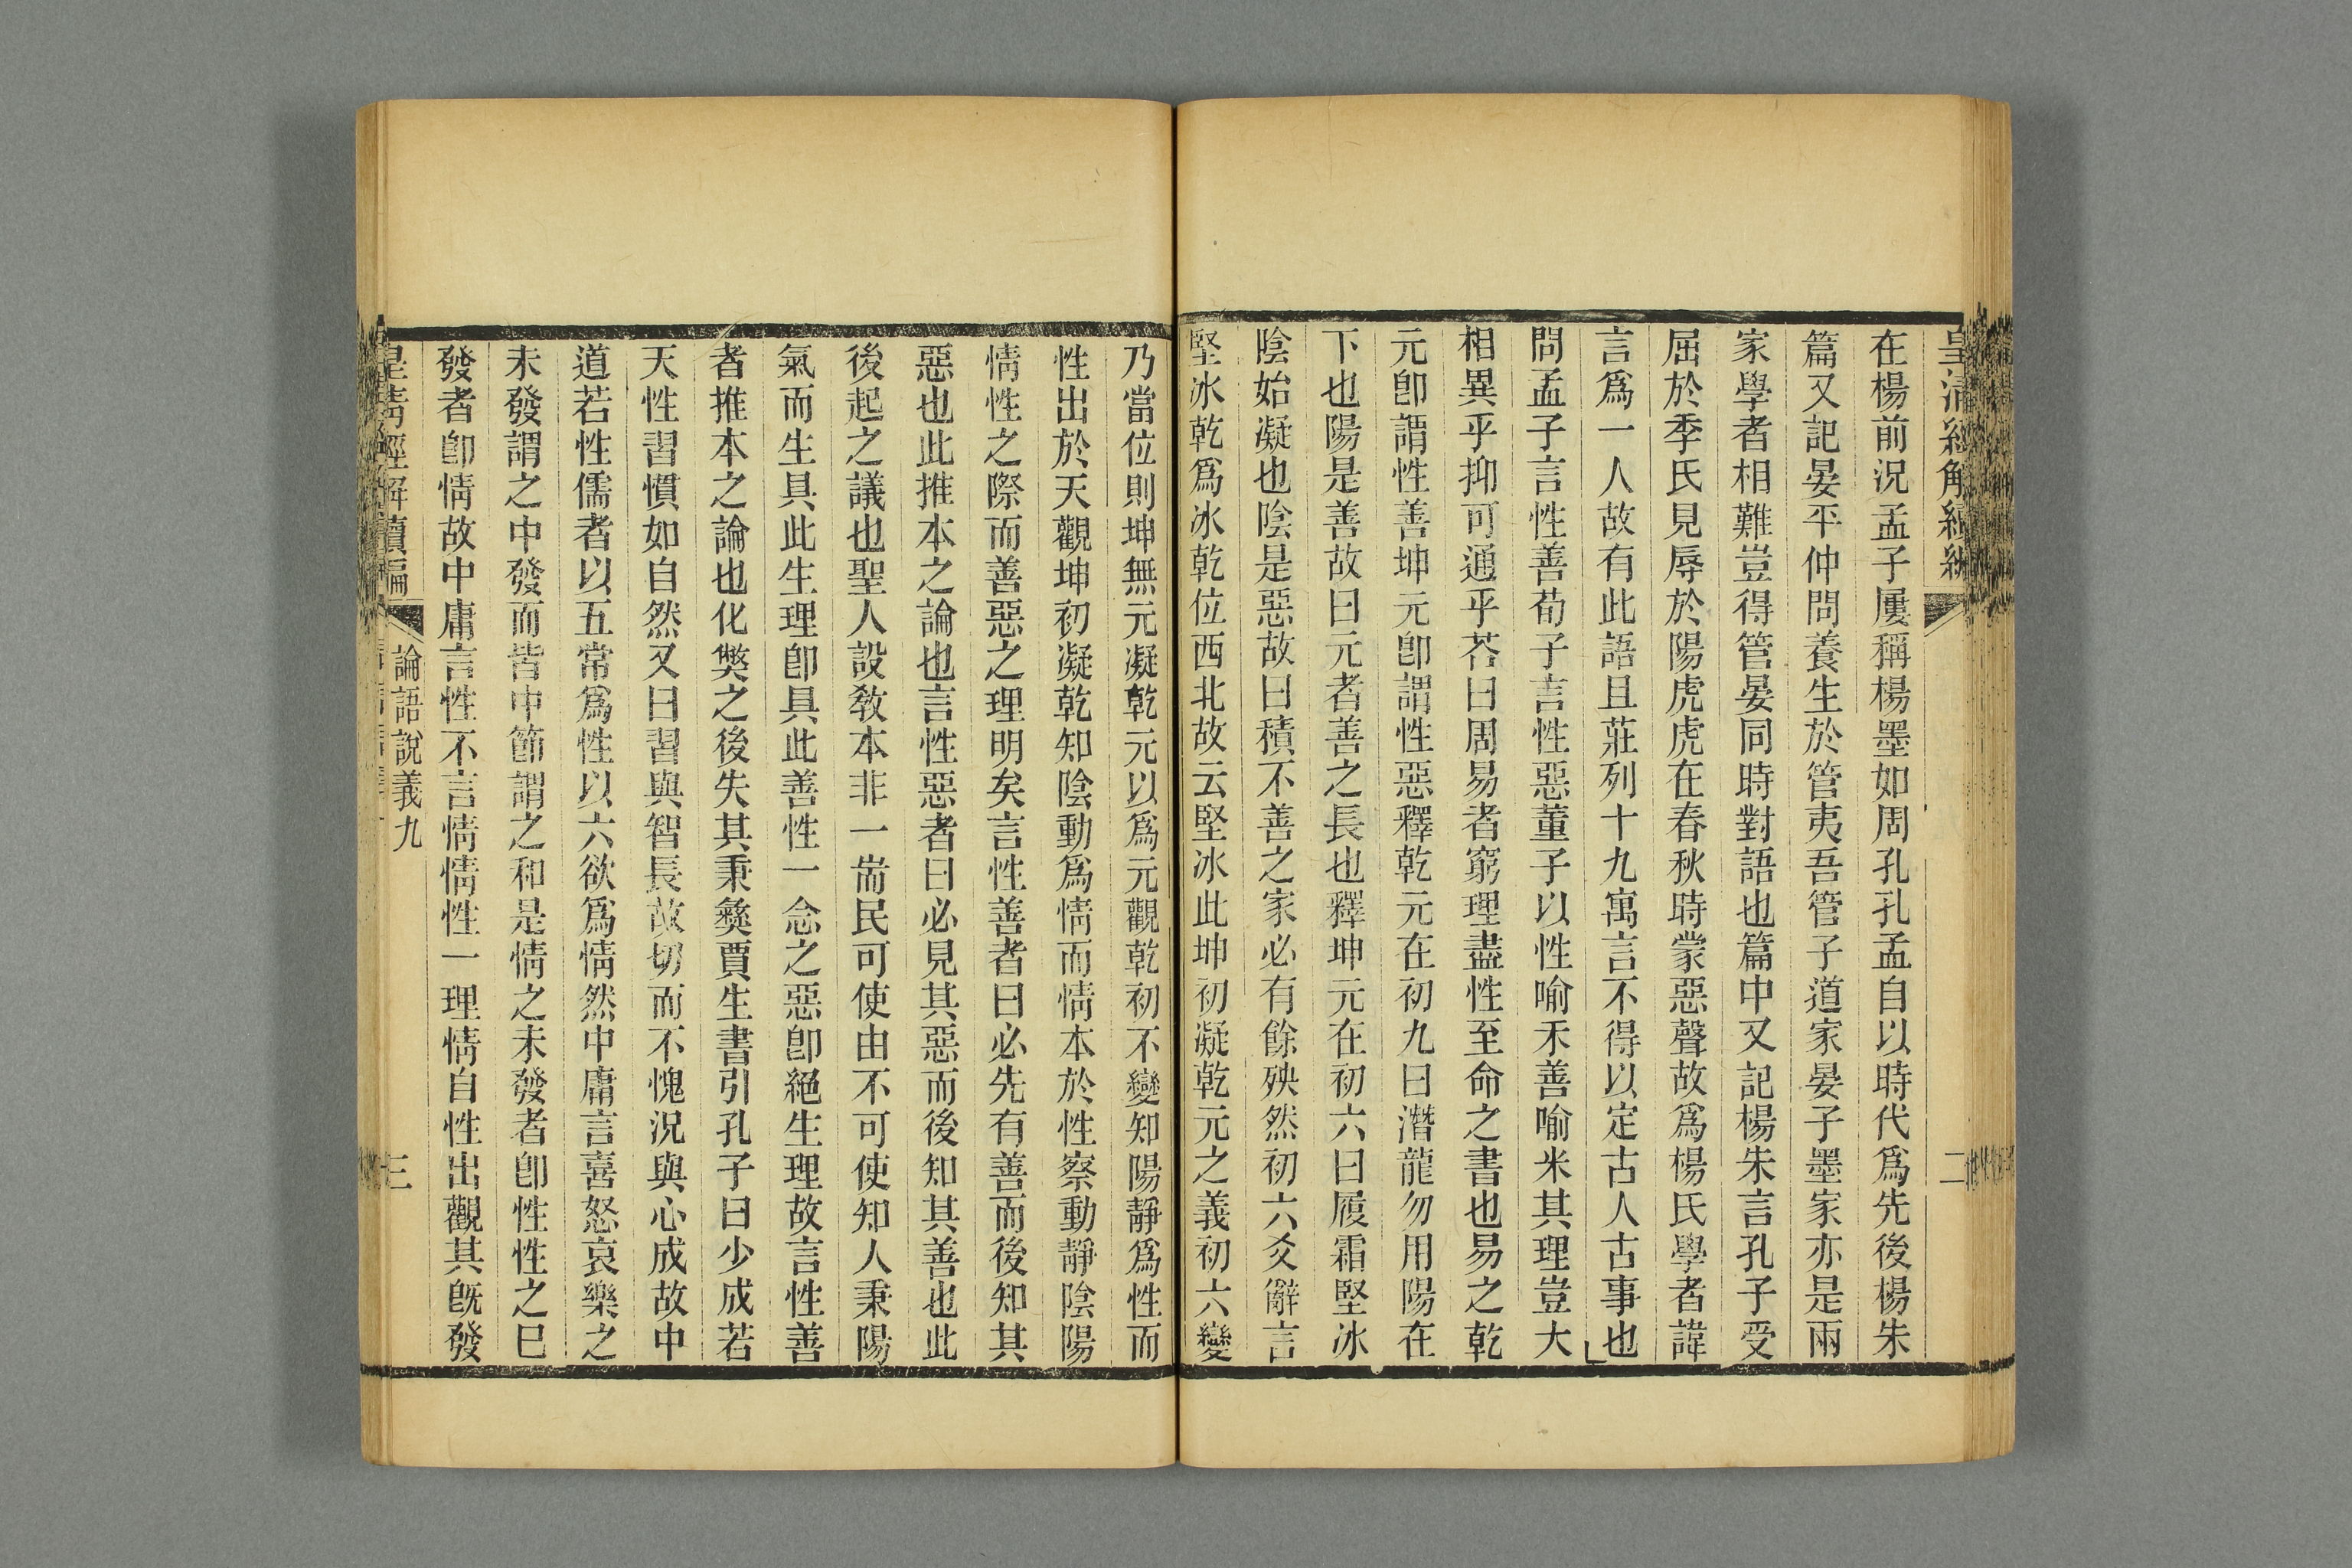 皇清經解續編
二
在楊前況孟子屢稱楊墨如周孔孔孟自以時代爲先後楊朱
篇又記晏平仲問養生於管夷吾管子道家晏子墨家亦是兩
家學者相難豈得管晏同時對語也篇中又記楊朱言孔子受
屈於季氏見辱於陽虎虎在春秋時蒙惡聲故爲楊氏學者諱
言爲一人故有此語且莊列十九寓言不得以定古人古事也
問孟子言性善荀子言性惡董子以性喻禾善喻米其理豈大
相異乎抑可通乎荅曰周易者窮理盡性至命之書也易之乾
元卽謂性善坤元卽謂性惡釋乾元在初九曰潛龍勿用陽在
下也陽是善故曰元者善之長也釋坤元在初六曰履霜堅冰
陰始凝也陰是惡故曰積不善之家必有餘殃然初六爻辭言
堅冰乾爲冰乾位西北故云堅冰此坤初凝乾元之義初六變
乃當位則坤無元凝乾元以爲元觀乾初不變知陽靜爲性而
性出於天觀坤初凝乾知陰動爲情而情本於性察動靜陰陽
情性之際而善惡之理明矣言性善者曰必先有善而後知其
惡也此推本之論也言性惡者曰必見其惡而後知其善也此
後起之議也聖人設敎本非一耑民可使由不可使知人秉陽
氣而生具此生理卽具此善性一念之惡卽絕生理故言性善
者推本之論也化獘之後失其秉彜賈生書引孔子曰少成若
天性習慣如自然又曰習與智長故切而不愧況與心成故中
道若性儒者以五常爲性以六欲爲情然中庸言喜怒哀樂之
未發謂之中發而皆中節謂之和是情之未發者卽性性之巳
發者卽情故中庸言性不言情情性一理情自性出觀其旣發
皇清經解續編
論語說義九
三